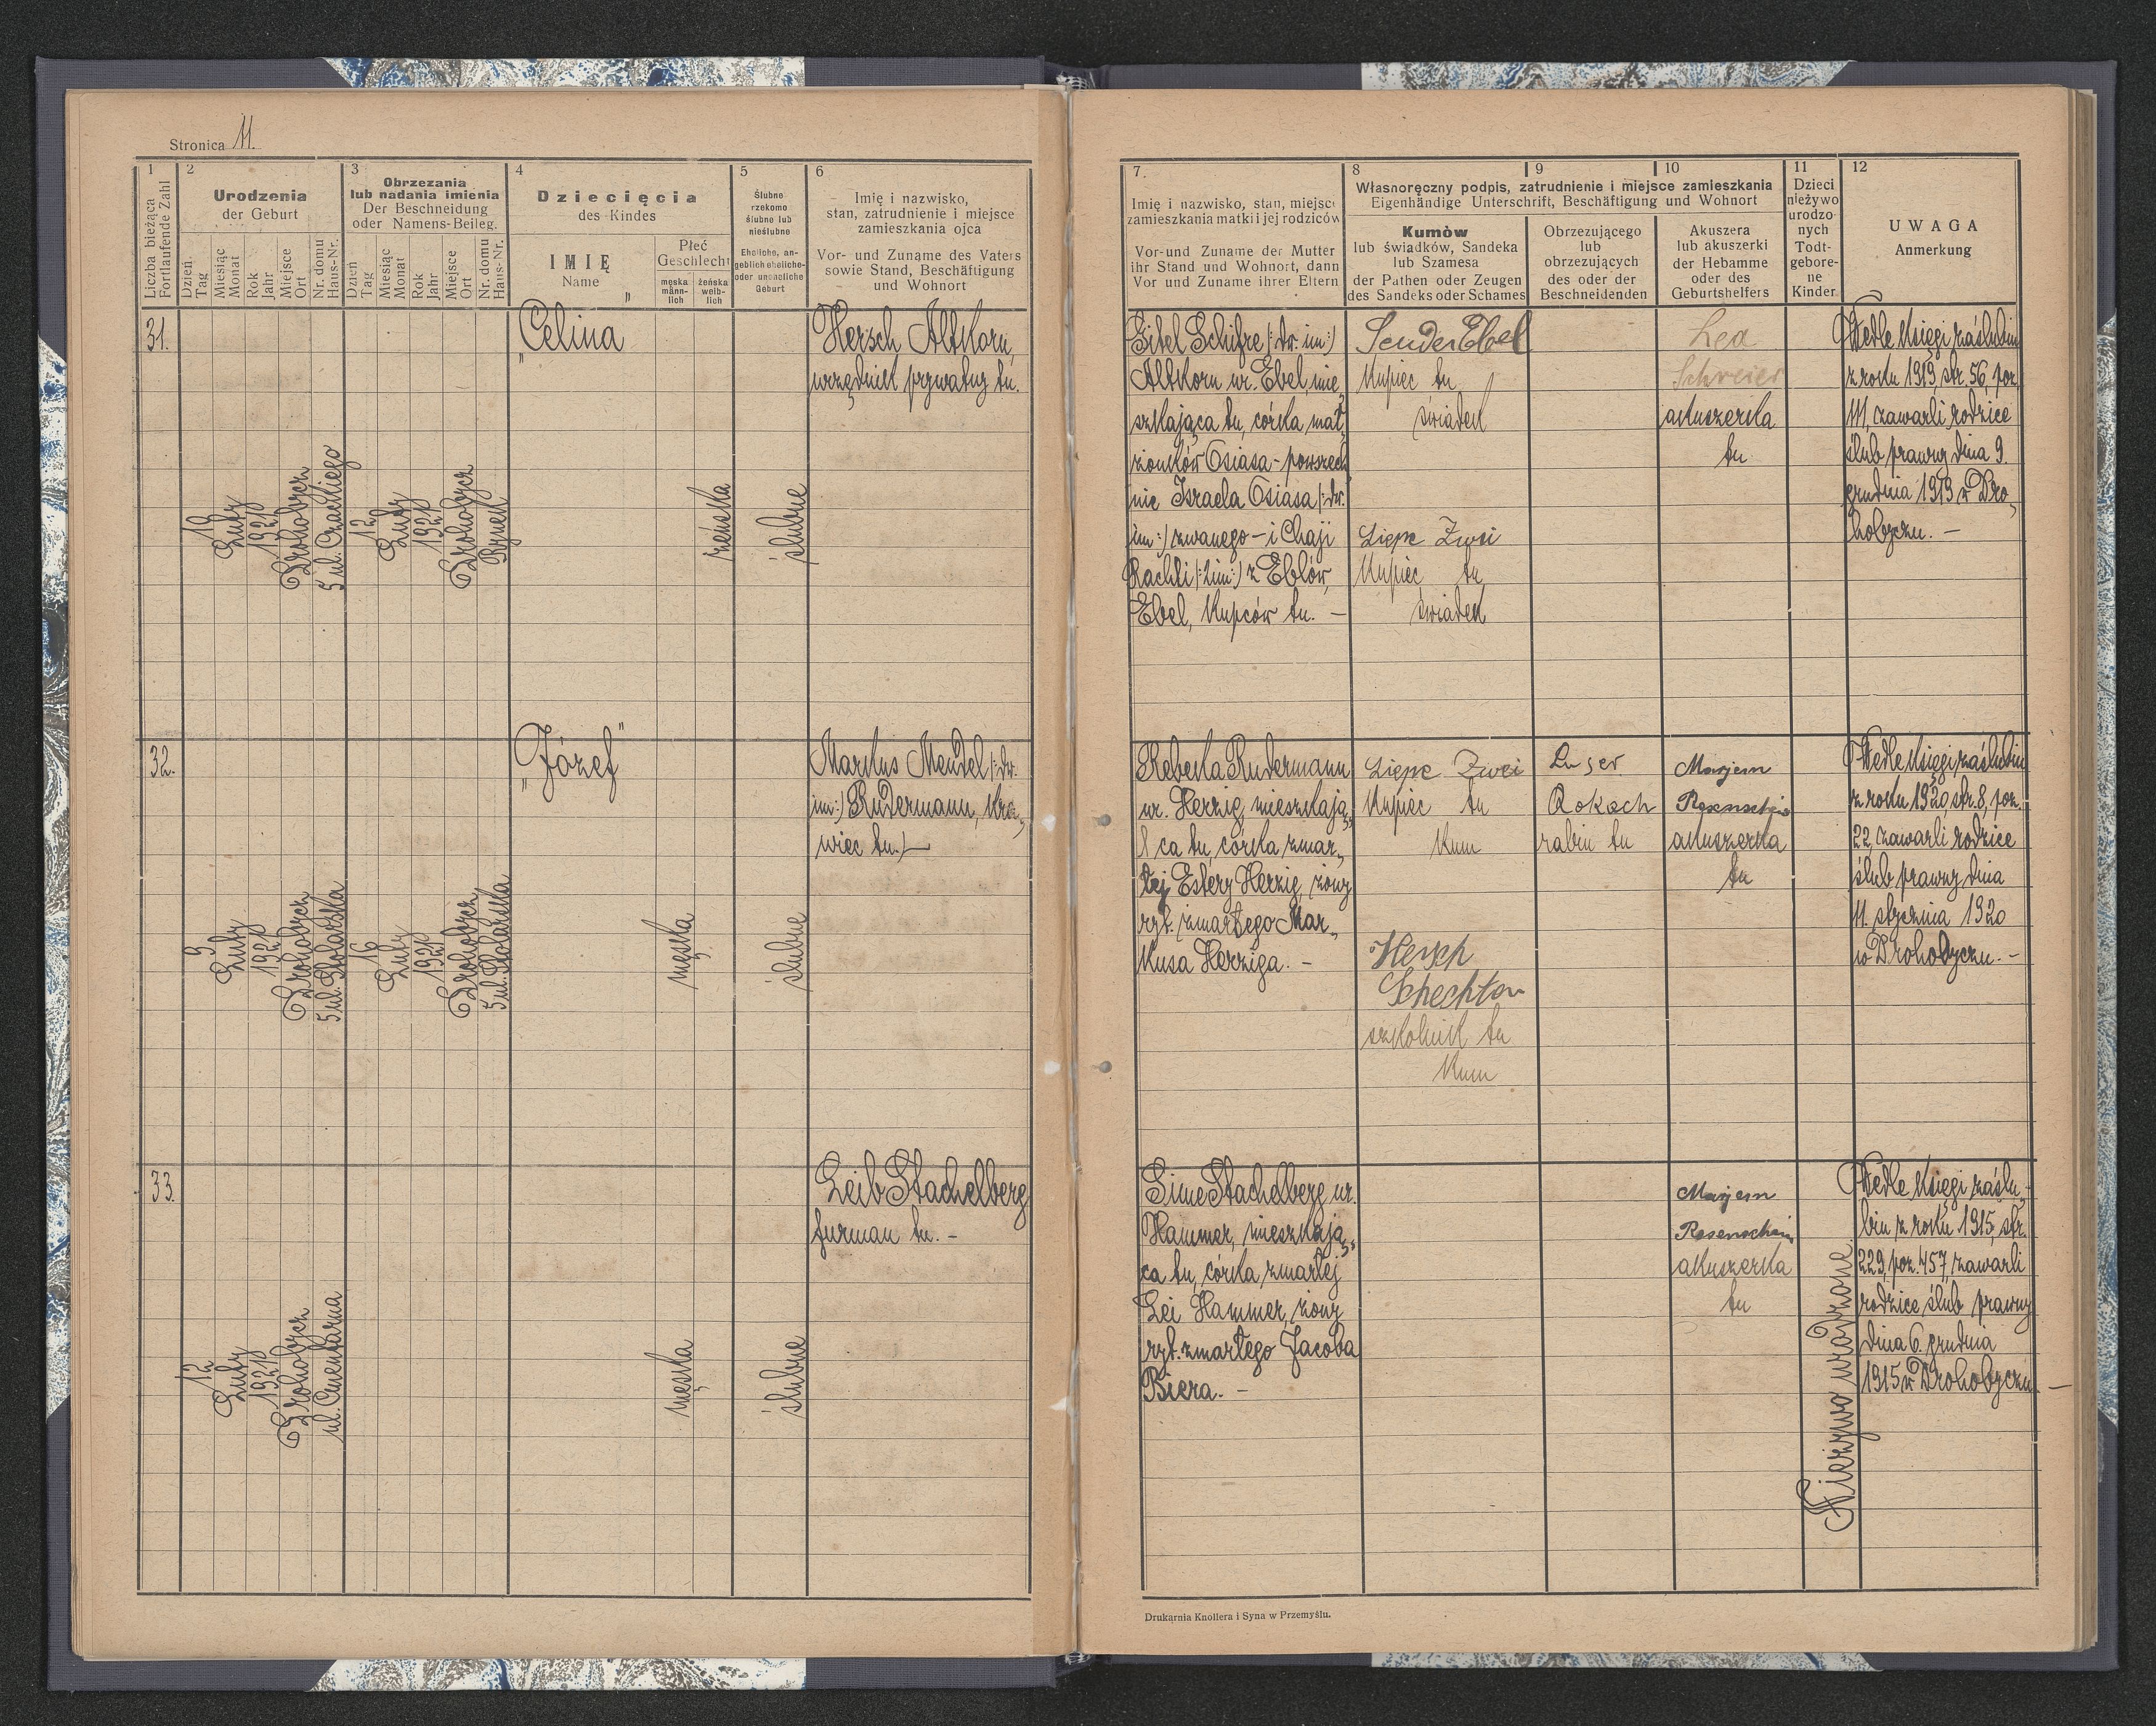 Stronica 11.
1
Liczba bieżąca
Fortlaufende Zahl
2
Urodzenia
der Geburt
Dzień
Tag
Miesiąc
Monat
Rok
Jahr
Miejsce
Ort
Nr. domu
Haus-Nr.
3
Obrzezania
lub nadania imienia
Der Beschneidung
oder Namens-Beileg.
Dzień
Tag
Miesiąc
Monat
Rok
Jahr
Miejsce
Ort
Nr. domu
Haus-Nr.
4
Dziecięcia
des Kindes
IMIĘ
Name
Płeć
Geschlecht
męska
männ-
lich
żeńska
weib-
lich
5
Ślubne
rzekomo
ślubne lub
nieślubne
Eheliche, an-
geblich eheliche-
oder uneheliche
Geburt
6
Imię i nazwisko,
stan, zatrudnienie i miejsce
zamieszkania ojca
Vor- und Zuname des Vaters
sowie Stand, Beschäftigung
und Wohnort
7.
Imię i nazwisko, stan, miejsce
zamieszkania matki i jej rodziców
Vor-und Zuname der Mutter
ihr Stand und Wohnort, dann
Vor und Zuname ihrer Eltern
8
9
10
Własnoręczny podpis, zatrudnienie i miejsce zamieszkania
Eigenhändige Unterschrift, Beschäftigung und Wohnort
Kumòw
lub świadków, Sandeka
lub Szamesa
der Pathen oder Zeugen
des Sandeks oder Schames
Obrzezującego
lub
obrzezujących
des oder der
Beschneidenden
Akuszera
lub akuszerki
der Hebamme
oder des
Geburtshelfers
11
Dzieci
nieżywo
urodzo-
nych
Todt-
gebore-
ne
Kinder
12
UWAGA
Anmerkung
31.
Luty
1921
Drohobycz
5 ul. Czackiego
12
Luty
1921
Drohobycz
Rynek
„Celina”
żeńska
ślubne
Hersch Altkorn,
urzędnik prywatny tu.
Gitel Schifre (: dw. im:)
Altkorn ur. Ebel, mie„
szkająca tu, córka mał„
żonków Osiasa - powszech
nie Israela Osiasa (: dw.
im:) zwanego - i Chaji
Rachli (: 2im:) z Eblów
Ebel, kupców tu. -
Sender Ebel
kupiec tu
świadek
Lippe Zwei
kupiec tu
świadek
Lea
Schreier
akuszerka
tu
Wedle księgi zaślubin
z roku 1919, str. 56, poz.
111, zawarli rodzice
ślub prawny dnia 9.
grudnia 1919 w Dro„
hobyczu. -
32.
9
Luty
1921
Drohobycz
5 ul. Stolarska
16
Luty
1921
Drohobycz
5 ul. Stolarska
„Józef”
męska
ślubne
Markus Mendel (: dw.
im:) Rudermann, kra„
wiec tu. -
Rebeka Rudermann
ur. Herzig, mieszkają„
ca tu, córka zmar„
łej Estery Herzig, żony
ryt. zmarłego Mar„
kusa Herziga. -
Lippe Zwei
kupiec tu
kum
Hersch
Schechter
szkolnik tu
kum
Rokach
rabin tu
Marjem
Rosenschein
akuszerka
tu
Wedle księgi zaślubin
z roku 1920, str. 8, poz.
22, zawarli rodzice
ślub prawny dnia
11. stycznia 1920
w Drohobyczu. -
33.
12
Luty
1921
Drohobycz
ul. Cmentarna
męska
ślubne
Leib Stachelberg
furman tu. -
Sime Stachelberg ur.
Hammer, mieszkają„
ca tu, córka zmarłej
Lei Hammer, żony
ryt. zmarłego Jacoba
Biera. -
Marjem
Rosenschein
akuszerka
tu
Nieżywo urodzone
Wedle księgi zaślu„
bin z roku 1915, str.
229, poz. 457, zawarli
rodzice ślub prawny
dnia 6. grudnia
1915 w Drohobyczu. -
Drukarnia Knollera i Syna w Przemyślu.